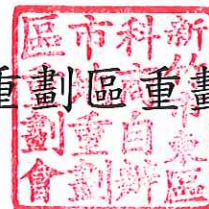 重劃區重劃
新竹市東區
科自辦
市地重劃
區重劃會